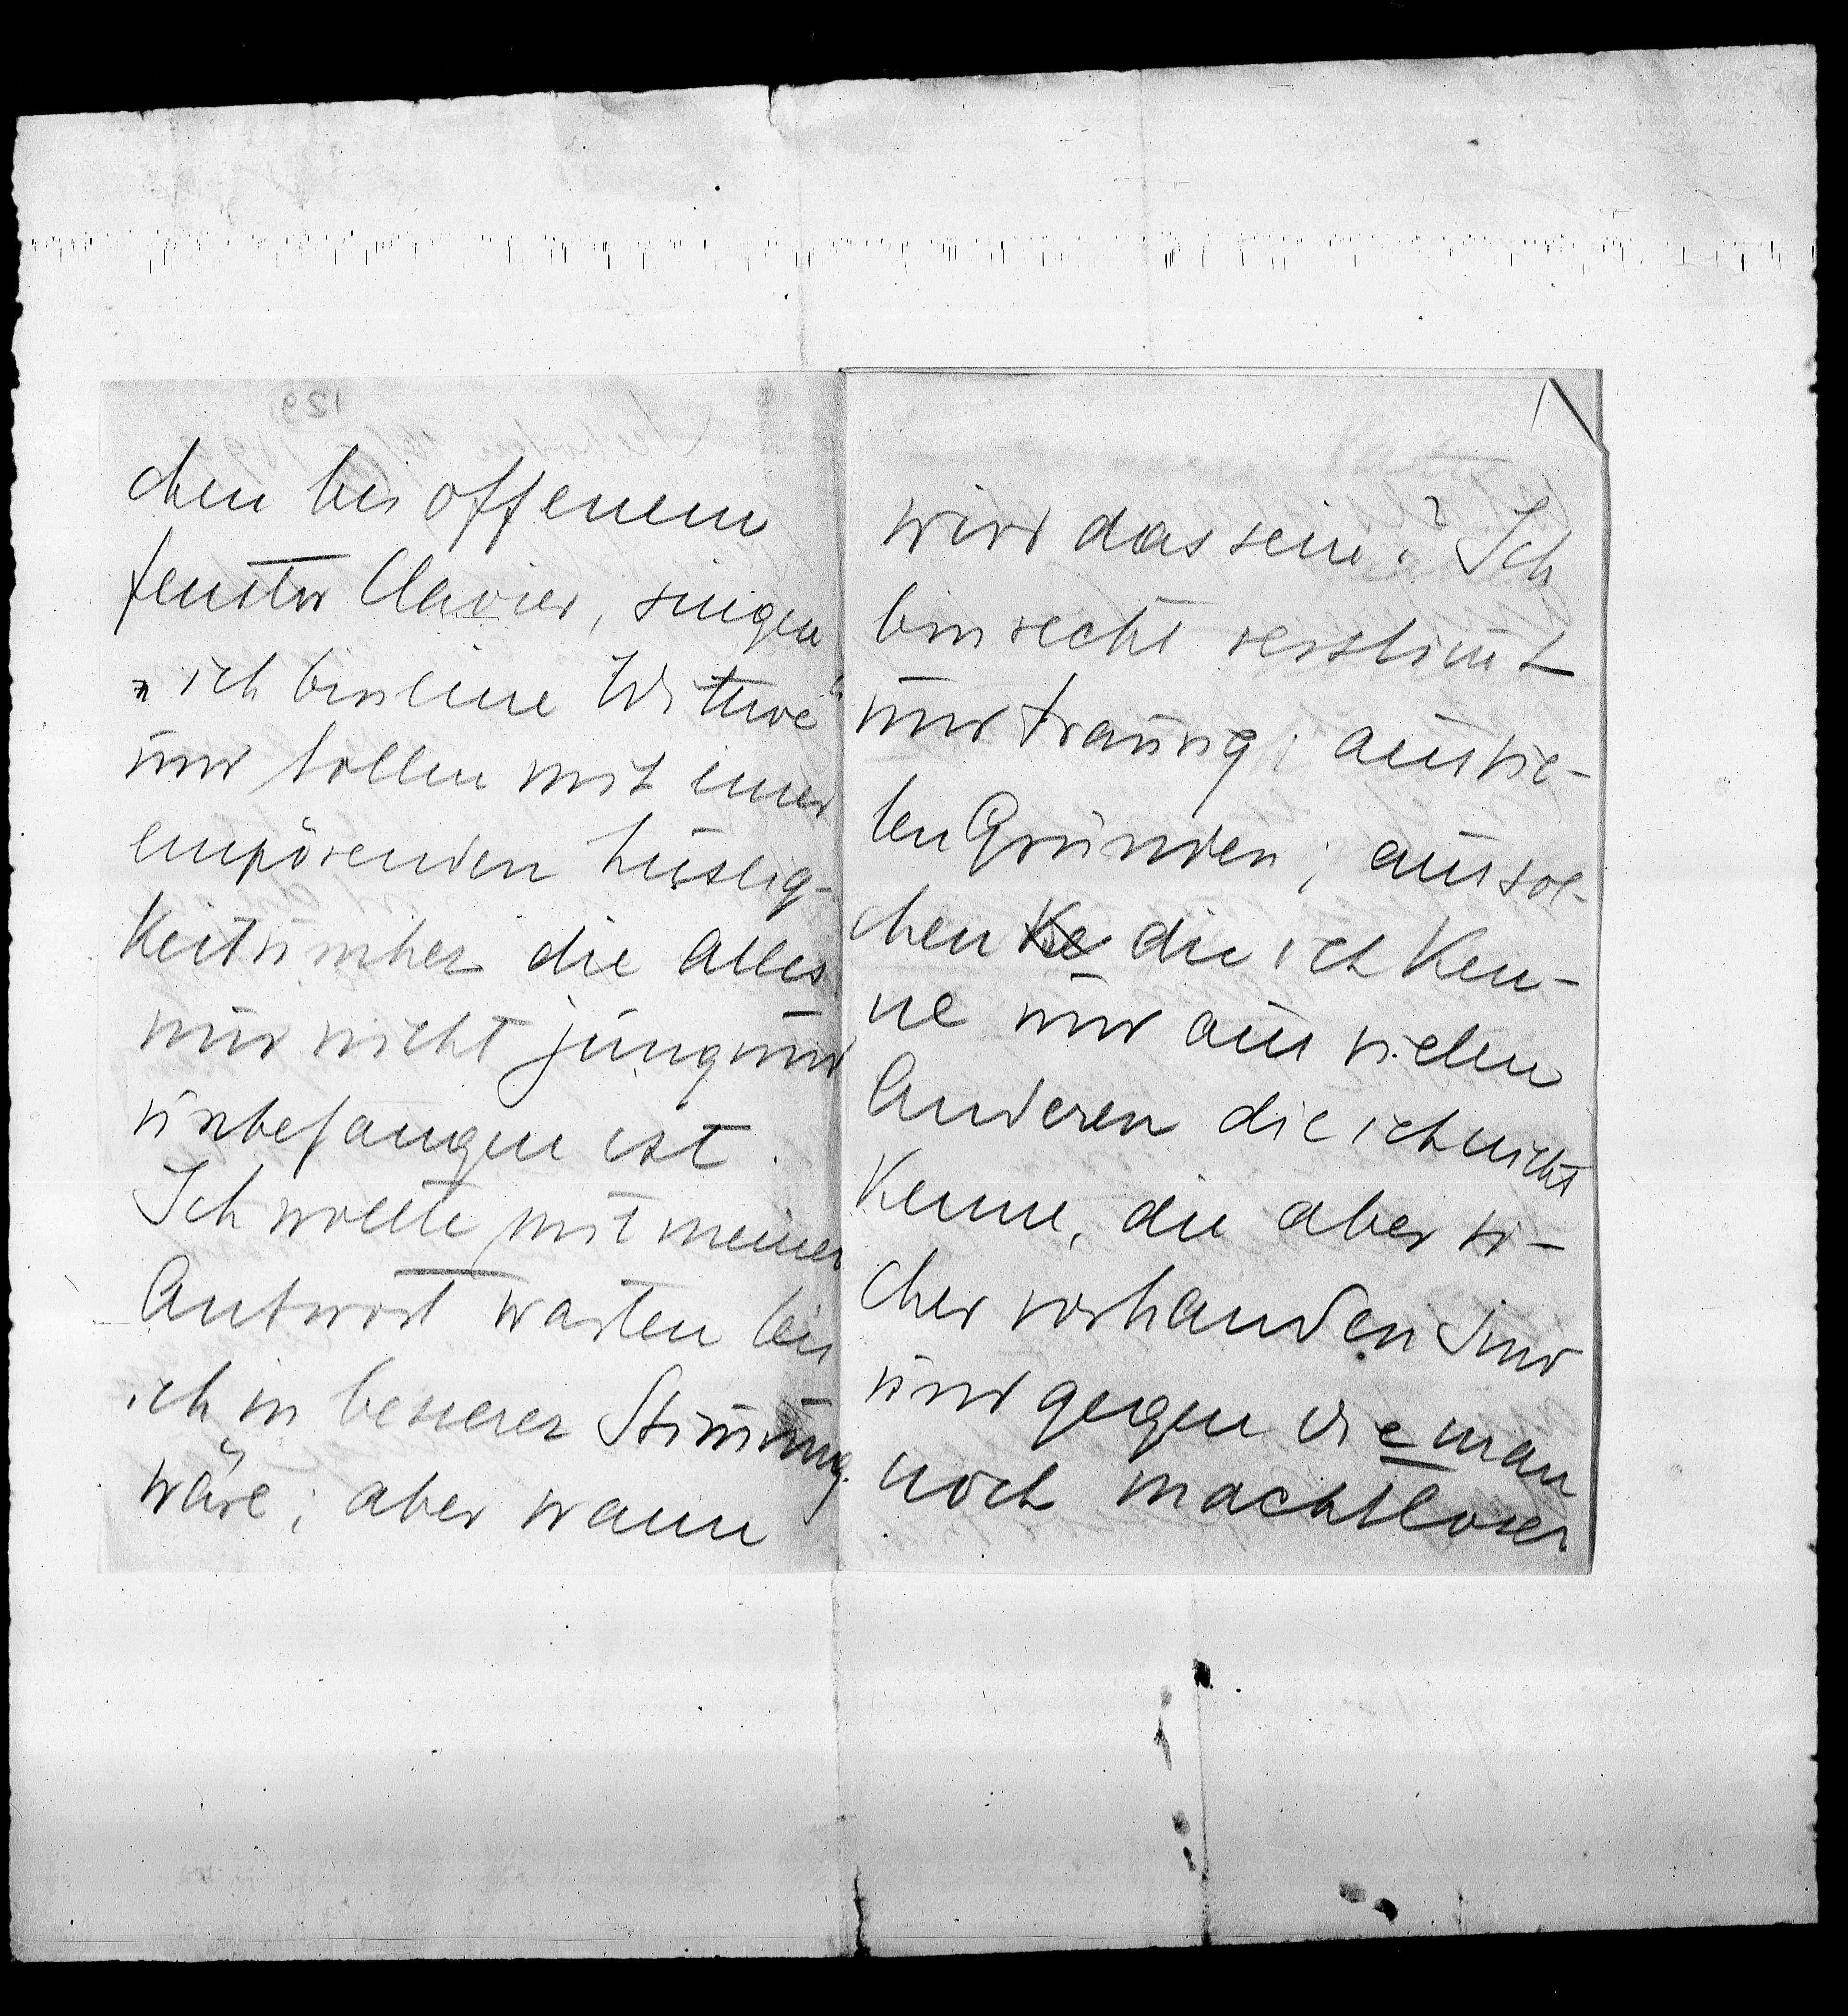 chen bei offenem
Fenster Clavier, singen
„ich bin eine Wittwe“
und tollen mit einer
empörenden Lustig-
keit umher die Alles
nur nicht jung und
unbefangen ist.
Ich wollte mit meiner
Antwort warten bis
ich in besserer Stimmung
wäre; aber wann
wird das sein? Ich
bin recht verstimt
und traurig; aus vie-
len Gründen; aus sol-
chen die ich Ken-
ne und aus vielen
Anderen die ich nicht
Kenne, die aber si-
cher vorhanden sind
und gegen die man
noch machtloser